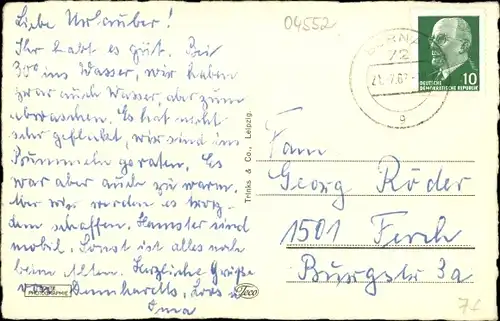 Liebe Urlauber!
Ihr habt es gut. Bei
30° ins Wasser, wir haben
zwar auch Wasser, aber zum
abwaschen. Es hat nicht
sehr gefleckt, wir sind ins
Bummeln geraten. Es
war aber auch zu warm.
Aber wir werden es trotz-
dem schaffen. Hamster sind
mobil. Sonst ist alles noch
beim Alten. Herzliche Grüße
von
Oma
PHOTOGRAPHIE
Trinks & Co., Leipzig.
Teco
04552
72
g
DEUTSCHE
DEMOKRATISCHE REPUBLIK
10
Fam
Georg Röder
1501 Ferch
Burgstr 3a